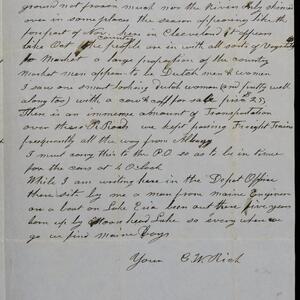 ground not frozen much nor the River only skimed
over in some places the season appearing like the
forepart of Nov
country
then in Cleveland it appears
like Oct the people are in with all sorts of
to Market a large proportion of the country
market men appear to be Dutch men & women
I saw one smart looking Dutch woman (and pretty well
along too) with a cow & calf for sale first 25$
There is an immense amount of Transportation
over these R Roads we kept passing Freight Trains
frequently all the way from Albany
I must carry this to the PO so as to be in time
for the cars at 4 O'clock
While I am writing here in the Depot Office
there sits by me a man from Maine Engineer
on a boat on Lake Erie been out there five years
born up by Moose head Lake so every where we
go we find Maine Boys
Yours C. W. Rich